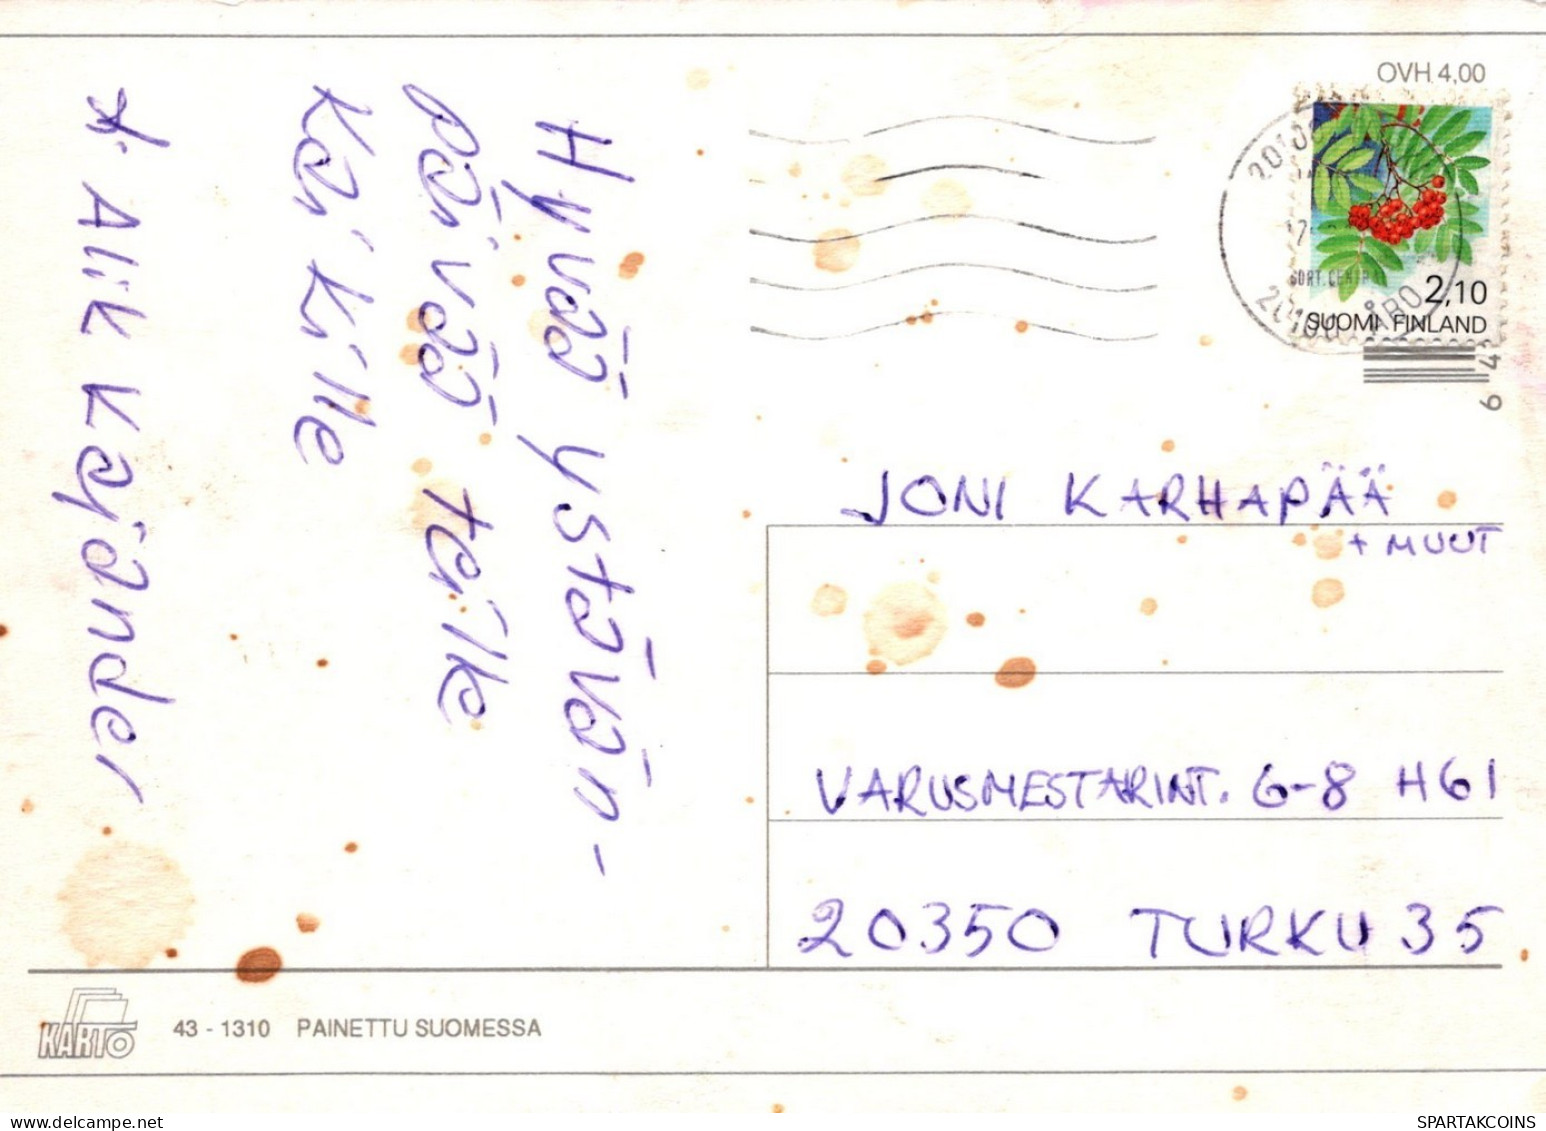 Hyvää ystävän-
päivää teille
kaikille
* Alik Kajander
OVH 4,00
2,10
SUOMI FINLAND
ÅBO
9
JONI KARHAPÄÄ
+ MUUT
VARUSMESTARINT. 6-8 H61
20350 TURKU 35
KARTO
43 - 1310 PAINETTU SUOMESSA
SPARTAKCOINS